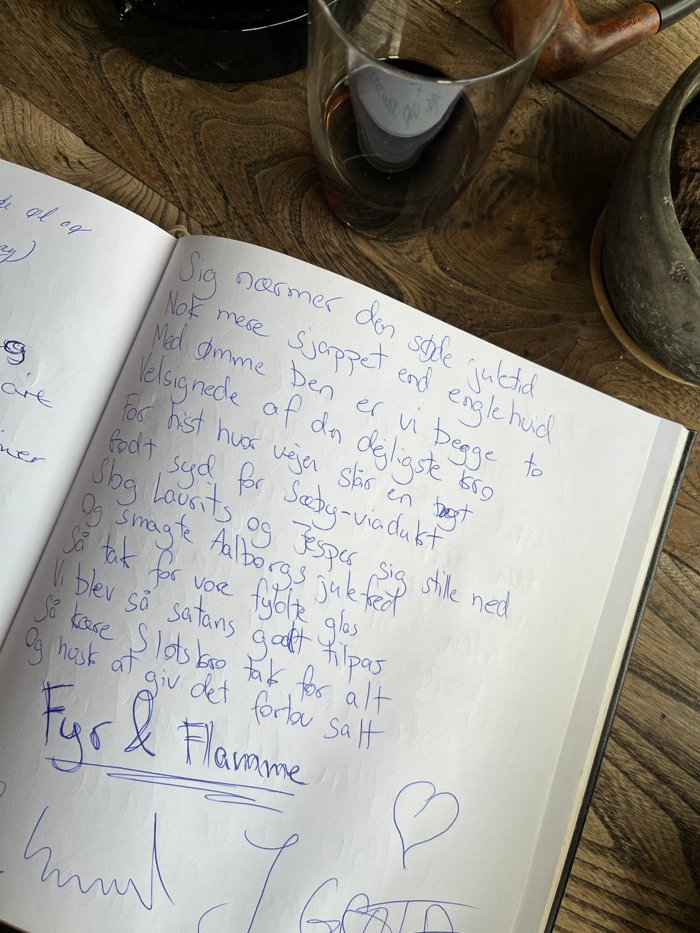 de øl og
Sig nærmer den søde juletid
Nok mere sjappet end englehvid
Med ømme ben er vi begge to
Velsignede af dn dejligste kro
For hist hvor vejen slår en bugt
Godt syd for Sæby-viadukt
Slog Laurits og Jesper sig stille ned
Og smagte Aalborgs julefred
Så tak for vore fyldte glas
Vi blev så satans godt tilpas
Så kære Slotskro tak for alt
Og husk at giv det fortov salt
Fyr & Flamme